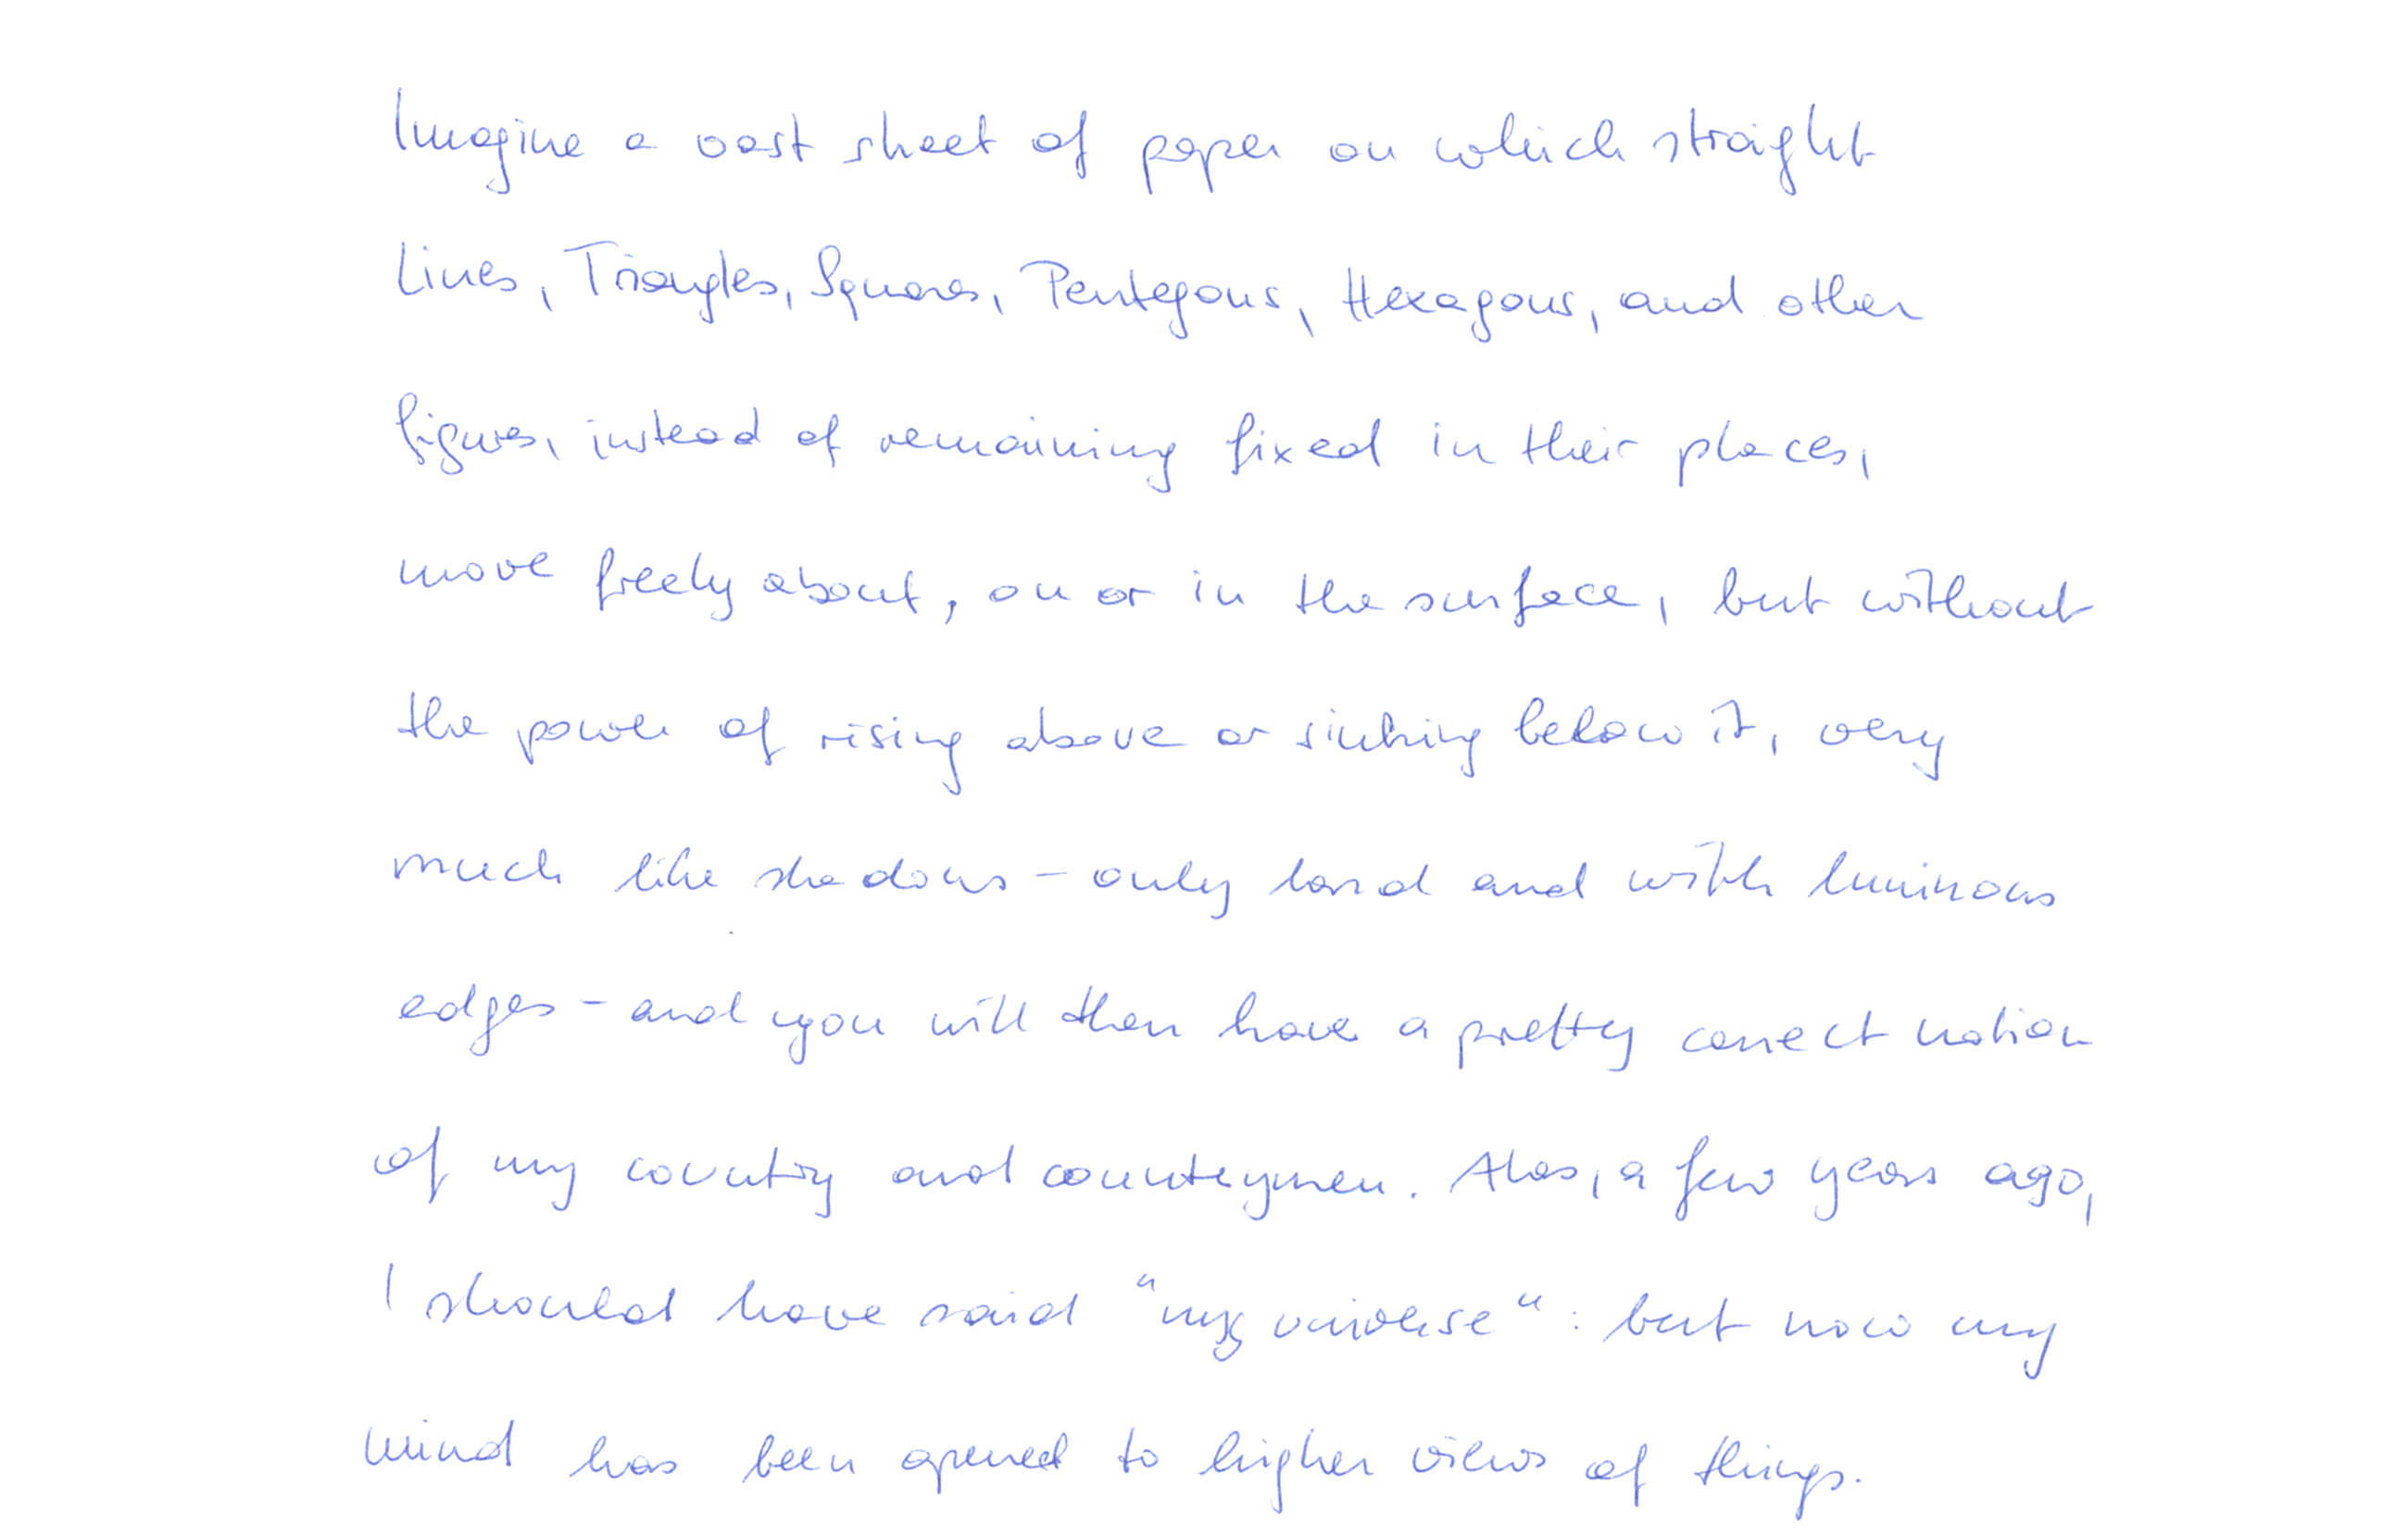 Imagine a vast sheet of paper on which straight
Lines, Triangles, Squares, Pentagons, Hexagons, and other
figures, instead of remaining fixed in their places,
move freely about, on or in the surface, but without
the power of rising above or sinking below it, very
much like shadows - only hard and with luminous
edges - and you will then have a pretty correct notion
of my country and countrymen. Alas, a few years ago,
I should have said "my universe": but now my
mind has been opened to higher views of things.